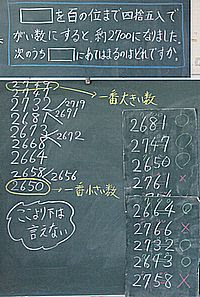 □を百の位まで四捨五入で
がい数にすると、約2700になりました。
次のうち□にあてはまるのはどれですか。
2749
2732 2719
2687 2691
2673 2672
2668
2664
2658 2656
2650
一番大きい数
一番小さい数
ここより下は
言えない
2681 ○
2747 ○
2650 ○
2761 ×
2664 ○
2766 ×
2732 ○
2673 ○
2758 ×